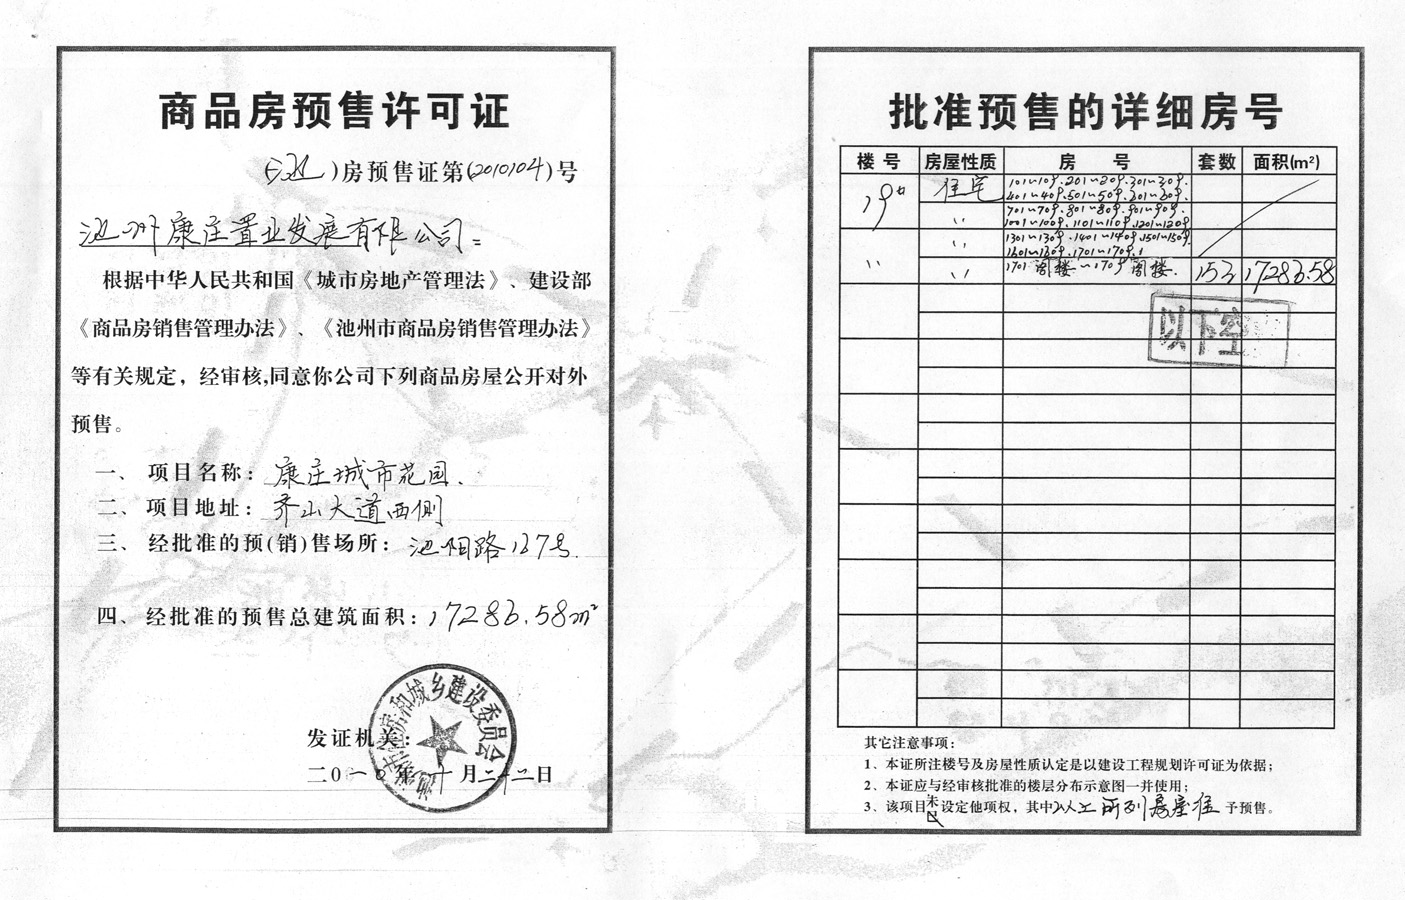 商品房预售许可证
(池)房预售证第(2010104)号
池州康庄置业发展有限公司:
根据中华人民共和国《城市房地产管理法》、建设部
《商品房销售管理办法》、《池州市商品房销售管理办法》
等有关规定，经审核,同意你公司下列商品房屋公开对外
预售。
一、项目名称: 康庄城市花园.
二、项目地址: 齐山大道西侧
三、经批准的预(销)售场所: 池阳路137号.
四、经批准的预售总建筑面积: 17286.58m²
发证机关:
住房和城乡建设委员会
二0一0年 月二十二日
批准预售的详细房号
楼号 房屋性质 房号 套数 面积(m²)
19# 住宅 101~109.201~209.301~309.
401~409.501~509.601~609.
〃 701~709.801~809.901~909.
1001~1009.1101~1109.1201~1209
〃 1301~1309.1401~1409.1501~1509.
1601~1609.1701~1709.
〃 〃 1701阁楼~1709阁楼. 153 17286.58
以下空
其它注意事项:
1、本证所注楼号及房屋性质认定是以建设工程规划许可证为依据;
2、本证应与经审核批准的楼层分布示意图一并使用;
3、该项目未设定他项权，其中以上所列房屋准予预售。